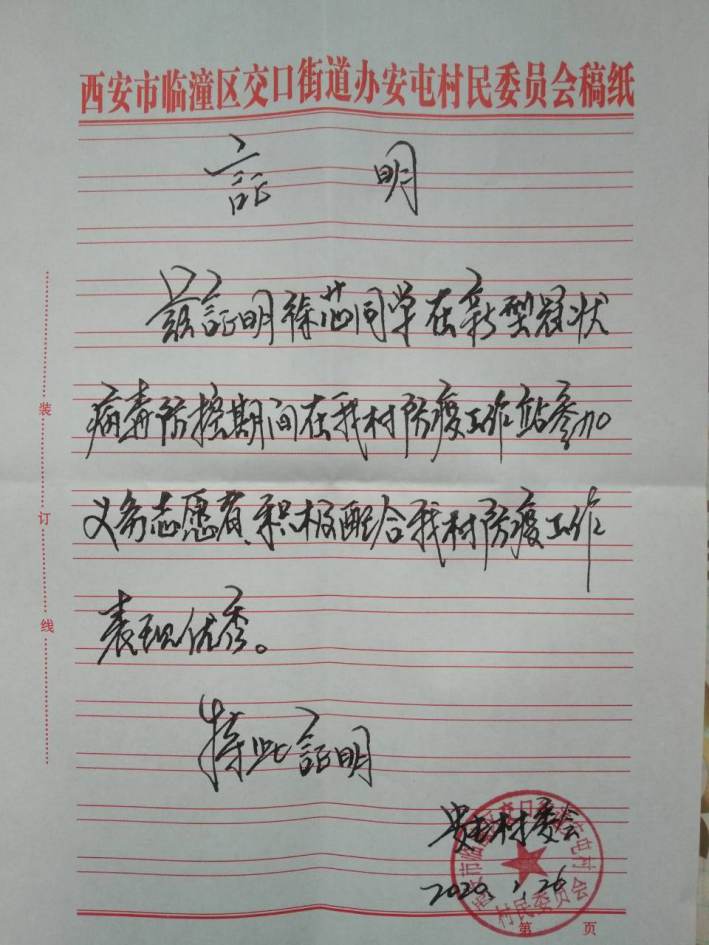 西安市临潼区交口街道办安屯村民委员会稿纸
証 明
兹証明徐芯同学在新型冠状
病毒防控期间在我村防疫工作站参加
义务志愿者、积极配合我村防疫工作
表现优秀。
特此証明
安屯村委会
2020.1.26
西安市临潼区交口街道办安屯村
村民委员会
第 页
装
订
线